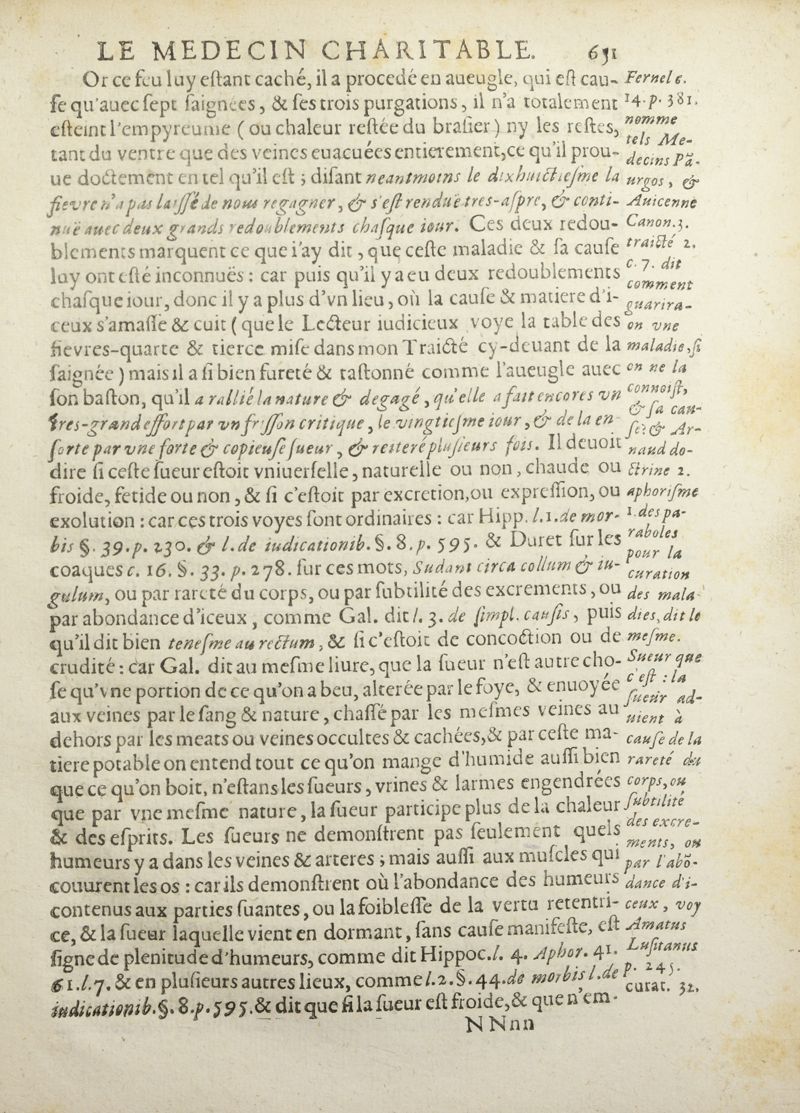 LE MEDECIN CHARITABLE. 651
Or ce feu luy eſtant caché, il a procedé en aueugle, qui eſt cau-
ſe qu'auec ſept ſaignées, & ſes trois purgations, il n'a totalement
eſteint l'empyreume (ou chaleur reſtée du braſier) ny les reſtes,
tant du ventre que des veines euacuées entierement, ce qu'il prou-
ue doctement en tel qu'il eſt; diſant neantmoins le dixhuictieſme la
fievre n'a pas laiſſé de nous regagner, & s'eſt renduë tres-aſpre, & conti-
nuë auec deux grands redoublements chaſque iour. Ces deux redou-
blements marquent ce que i'ay dit, que ceſte maladie & ſa cauſe
luy ont eſté inconnuës: car puis qu'il y a eu deux redoublements
chaſque iour, donc il y a plus d'vn lieu, où la cauſe & matiere d'i-
ceux s'amaſſe & cuit (que le Lecteur iudicieux voye la table des
fievres-quarte & tierce miſe dans mon Traicté cy-deuant de la
ſaignée) mais il a ſi bien fureté & taſtonné comme l'aueugle auec
ſon baſton, qu'il a rallié la nature & degagé, qu'elle a fait encores vn
tres-grand effort par vn friſſon critique, le vingtieſme iour, & de là en
ſorte par vne forte & copieuſe ſueur, & reiteré pluſieurs fois. Il deuoit
dire ſi ceſte ſueur eſtoit vniuerſelle, naturelle ou non, chaude ou
froide, fetide ou non, & ſi c'eſtoit par excretion, ou expreſſion, ou
exolution: car ces trois voyes ſont ordinaires: car Hipp. l.1.de mor-
bis §. 39.p. 230. & l.de iudicationib. §. 8.p. 595. & Duret ſur les
coaques c. 16. §. 33. p. 278. ſur ces mots, Sudant circa collum & iu-
gulum, ou par rareté du corps, ou par ſubtilité des excrements, ou
par abondance d'iceux, comme Gal. dit l. 3. de ſimpl. cauſis, puis
qu'il dit bien teneſme au rectum, & ſi c'eſtoit de concoction ou de
crudité: car Gal. dit au meſme liure, que la ſueur n'eſt autre cho-
ſe qu'vne portion de ce qu'on a beu, alterée par le foye, & enuoyée
aux veines par le ſang & nature, chaſſé par les meſmes veines au
dehors par les meats ou veines occultes & cachées, & par ceſte ma-
tiere potable on entend tout ce qu'on mange d'humide auſſi bien
que ce qu'on boit, n'eſtans les ſueurs, vrines & larmes engendrées
que par vne meſme nature, la ſueur participe plus de la chaleur
& des eſprits. Les ſueurs ne demonſtrent pas ſeulement quels
humeurs y a dans les veines & arteres; mais auſſi aux muſcles qui
couurent les os: car ils demonſtrent où l'abondance des humeurs
contenus aux parties ſuantes, ou la foibleſſe de la vertu retentri-
ce, & la ſueur laquelle vient en dormant, ſans cauſe manifeſte, eſt
ſigne de plenitude d'humeurs, comme dit Hippoc. l. 4. Aphor. 41.
61. l.7. & en pluſieurs autres lieux, comme l.2.§.44.de morbis l.de
iudicationib.§.8.p.595.& dit que ſi la ſueur eſt froide, & que n'em-
NNnn
Fernel c.
14.p. 381.
nomme
tels Me-
decins Pã-
urgos, &
Auicenne
Canon.3.
traicté 2.
c. 7. dit
comment
guarira-
on vne
maladie, ſi
on ne la
connoiſt,
& ſa cau-
ſe: & Ar-
naud do-
ctrine 2.
aphoriſme
1. des pa-
raboles
pour la
curation
des mala-
dies, dit le
meſme.
Sueur que
c'eſt: la
ſueur ad-
uient à
cauſe de la
rareté du
corps, ou
ſubtilité
des excre-
ments, ou
par l'abõ-
dance d'i-
ceux, voy
Amatus
Luſitanus
p. 245.
curat. 32.